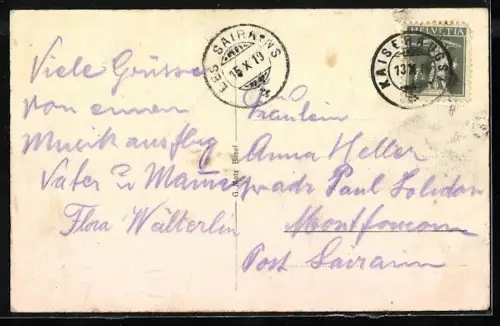 HELVETIA
LES SAIRAINS
15 X 19
KAISERAUGST
13 X
Viele Grüsse
von einem
Musikausflug
Vater u Mama
Flora Wälterlin
G. Metz Basel
Fräulein
Anna Heller
adr Paul
Montfaucon
Post